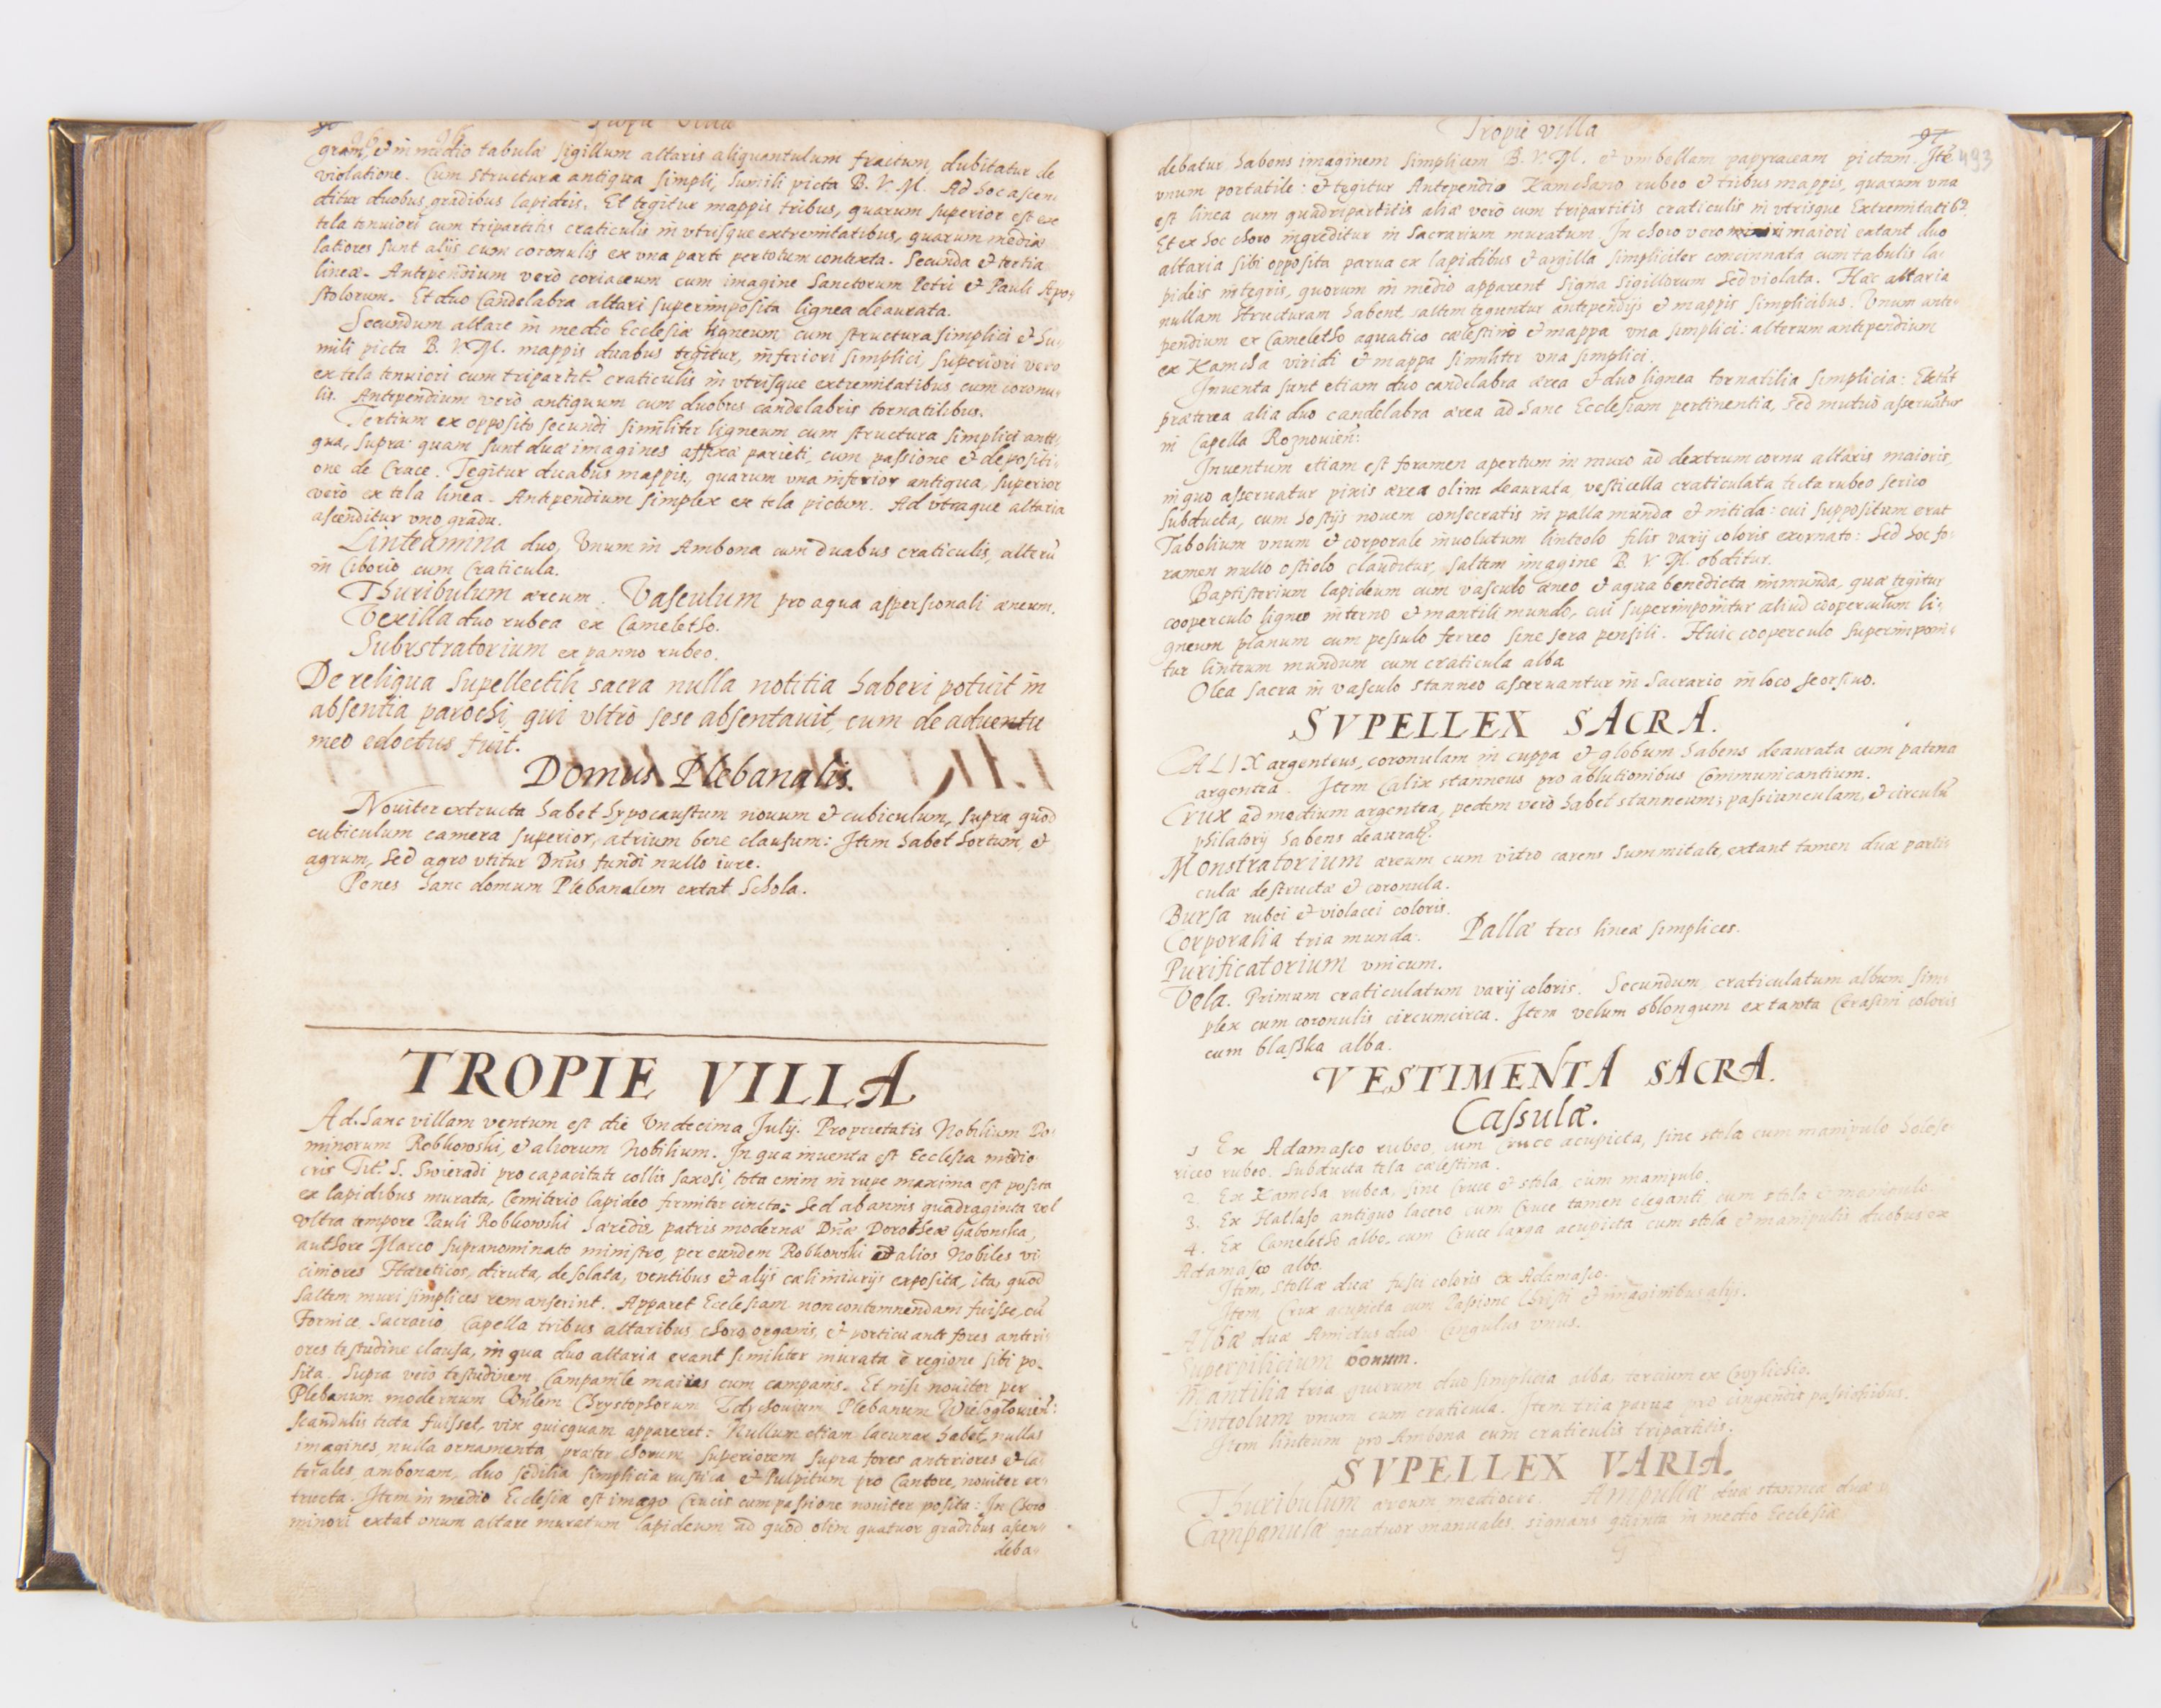 Tropie Villa
gram, et in medio tabulæ sigillum altaris aliquantulum fractum, dubitatur de
violatione. Cum structura antiqua simpli, humili picta B. V. M. Ad hoc ascen-
ditur duobus gradibus lapideis. Et tegitur mappis tribus, quarum superior est ex
tela tenuiori cum tripartitis craticulis in vtrisque extremitatibus, quarum mediæ
latiores sunt alijs cum coronulis ex vna parte per totum contexta. Secunda et tertia
lineæ. Antependium verò coriaceum cum imagine Sanctorum Petri et Pauli Apo-
stolorum. Et duo Candelabra altari superimposita lignea deaurata.
Secundum altare in medio Ecclesiæ ligneum cum structura simplici et hu-
mili picta B. V. M. mappis duabus tegitur, inferiori simplici, superiori vero
ex tela tenuiori cum tripartit. craticulis in vtrisque extremitatibus cum coronu-
lis. Antependium verò antiquum cum duobus candelabris tornatilibus.
Tertium ex opposito secundi similiter ligneum cum structura simplici anti-
qua, supra quam sunt duæ imagines affixæ parieti, cum passione et depositi-
one de Cruce. Tegitur duabus mappis, quarum vna inferior antiqua, superior
verò ex tela linea. Antependium simplex ex tela pictum. Ad vtraque altaria
ascenditur vno gradu.
Linteamina duo, Vnum in Ambona cum duabus craticulis, alterũ
in Ciborio cum Craticula.
Thuribulum æreum. Vasculum pro aqua aspersionali æneum.
Vexilla duo rubea ex Cameletho.
Substratorium ex panno rubeo.
De reliqua Supellectili sacra nulla notitia haberi potuit in
absentia parochi, qui vltrò sese absentauit, cum de aduentu
meo edoctus fuit.
Domus Plebanalis.
Nouiter extructa habet hypocaustum nouum et cubiculum, supra quod
cubiculum camera superior, atrium bene clausum: Item habet hortum, et
agrum, Sed agro vtitur Dnũs fundi nullo iure.
Penes hanc domum Plebanalem extat Schola.
TROPIE VILLA
Ad hanc villam ventum est die Vndecima Julij. Proprietatis Nobilium Do-
minorum Robkowski, et aliorum Nobilium. In qua inuenta est Ecclesia medio-
cris Tit. S. Swieradi pro capacitate collis saxosi, tota enim in rupe maxima est posita
ex lapidibus murata, Cemiterio lapideo firmiter cincta: Sed ab annis quadraginta vel
vltra tempore Pauli Robkowski hæredis, patris modernæ Dnæ Dorotheæ Gabonska,
authore Marco supranominato ministro, per eundem Robkowski et alios Nobiles vi-
ciniores Hæreticos, diruta, desolata, ventibus et alijs cæli iniurijs exposita, ita, quod
saltem muri simplices remanserint. Apparet Ecclesiam non contemnendam fuisse, cũ
Fornice, Sacrario, Capella tribus altaribus, choro, organis, et porticu ante fores anteri-
ores testudine clausa, in qua duo altaria erant similiter murata è regione sibi po-
sita. Supra verò testudinem Campanile maius cum campanis. Et nisi nouiter per
Plebanum modernum Chrystophorum Plebanum Wieloglouien:
scandulis tecta fuisset, vix quicquam appareret: Nullum etiam lacunar habet, nullas
imagines, nulla ornamenta præter chorum superiorem supra fores anteriores et la-
terales, ambonam, duo sedilia simplicia rustica et Pulpitum pro Cantore, nouiter ex-
tructa. Item in medio Ecclesiæ est imago Crucis cum passione nouiter posita: In Choro
minori extat vnum altare muratum lapideum ad quod olim quatuor gradibus ascen-
deba-
Tropie villa
97
493
debatur habens imaginem simplicem B. V. M. et vmbellam papyraceam pictam. Itẽ
vnum portatile: et tegitur Antependio Kamchano rubeo et tribus mappis, quarum vna
est linea cum quadripartitis aliæ verò cum tripartitis craticulis in vtrisque Extremitatib.
Et ex hoc choro ingreditur in Sacrarium muratum. In choro vero maiori extant duo
altaria sibi opposita parua ex lapidibus et argilla simpliciter concinnata cum tabulis la-
pideis integris, quorum in medio apparent signa sigillorum Sed violata. Hæc altaria
nullam structuram habent, saltem teguntur antependijs et mappis simplicibus. Vnum ante-
pendium ex Cameletho aquatico cælestino et mappa vna simplici: alterum antependium
ex Kamcha viridi et mappa similiter vna simplici.
Inuenta sunt etiam duo candelabra ærea et duo lignea tornatilia simplicia: Extãt
præterea alia duo candelabra ærea ad hanc Ecclesiam pertinentia, sed mutuò asseruãtur
in Capella Roznouien:
Inuentum etiam est foramen apertum in muro ad dextrum cornu altaris maioris,
in quo asseruatur pixis ærea olim deaurata, vesticella craticulata tecta rubeo serico
subducta, cum hostijs nouem consecratis in palla munda et nitida: cui suppositum erat
Tabolium vnum et corporale inuolutum linteolo filis varij coloris exornato: Sed hoc fo-
ramen nullo ostiolo clauditur, saltem imagine B. V. M. obditur.
Baptisterium lapideum cum vasculo æneo et aqua benedicta immunda, quæ tegitur
cooperculo ligneo interno et mantili mundo, cui superimponitur aliud cooperculum li-
gneum planum cum pessulo ferreo sine sera pensili. Huic cooperculo superimponi-
tur linteum mundum cum craticula alba
Olea sacra in vasculo stanneo asseruantur in Sacrario in loco seorsiuo.
SVPELLEX SACRA.
CALIX argenteus, coronulam in cuppa et globum habens deaurata cum patena
argentea. Item Calix stanneus pro ablutionibus Communicantium.
Crux ad medium argentea, pedem verò habet stanneum; passiunculam, et circulũ
philatorij habens deaurat.
Monstratorium æreum cum vitro carens summitate, extant tamen duæ parti-
culæ destructæ et coronula.
Bursa rubei et violacei coloris.
Corporalia tria munda. Pallæ tres lineæ simplices.
Purificatorium vnicum.
Vela. Primum craticulatum varij coloris. Secundum craticulatum album sim-
plex cum coronulis circumcirca. Item velum oblongum ex tawta Cerasini coloris
cum blaszka alba.
VESTIMENTA SACRA.
Cassulæ.
1 Ex Adamasco rubeo, cum Cruce acupicta, sine stola cum manipulo holose-
riceo rubeo. Subducta tela cælestina.
2. Ex Kamcha rubea, sine Cruce et stola, cum manipulo.
3. Ex Hatlaso antiquo lacero cum Cruce tamen eleganti cum stola et manipulo.
4. Ex Cameletho albo, cum Cruce larga acupicta cum stola et manipulis duobus ex
Adamasco albo.
Item, Stollæ duæ fusci coloris ex Adamasco.
Item, Crux acupicta cum Passione Christi et imaginibus alijs.
Albæ duæ Amictus duo Cingulus vnus.
Superpilicium bonum.
Mantilia tria quorum duo simplicia alba, tercium ex Cwylichio.
Linteolum vnum cum craticula. Item tria parua pro cingendis passionibus.
Item linteum pro Ambona cum craticulis tripartitis.
SVPELLEX VARIA.
Thuribulum æreum mediocre. Ampullæ duæ stanneæ duæ
Campanulæ quatuor manuales, signans quinta in medio Ecclesiæ